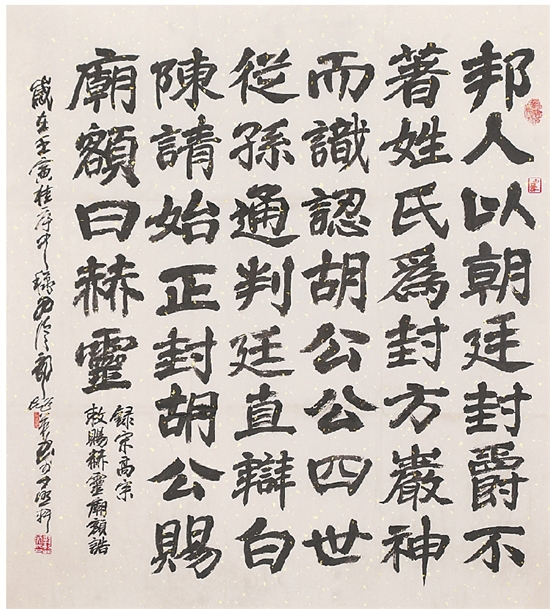 邦人以朝廷封爵不
著姓氏爲封方巖神
而識認胡公公四世
從孫通判廷直辯白
陳請始正封胡公賜
廟額曰赫靈
錄宋高宗
敕賜赫靈廟額誥
歲在壬寅桂序中